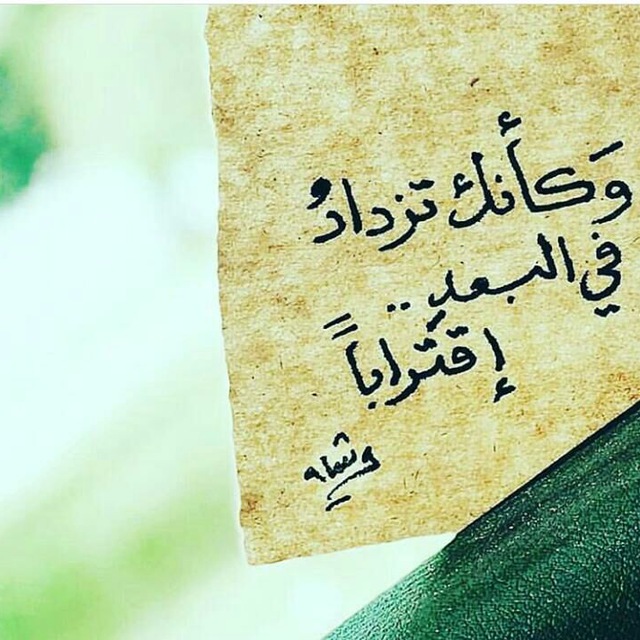 وَكأنك تزدادُ
في البعدِ ..
إقتَراباً